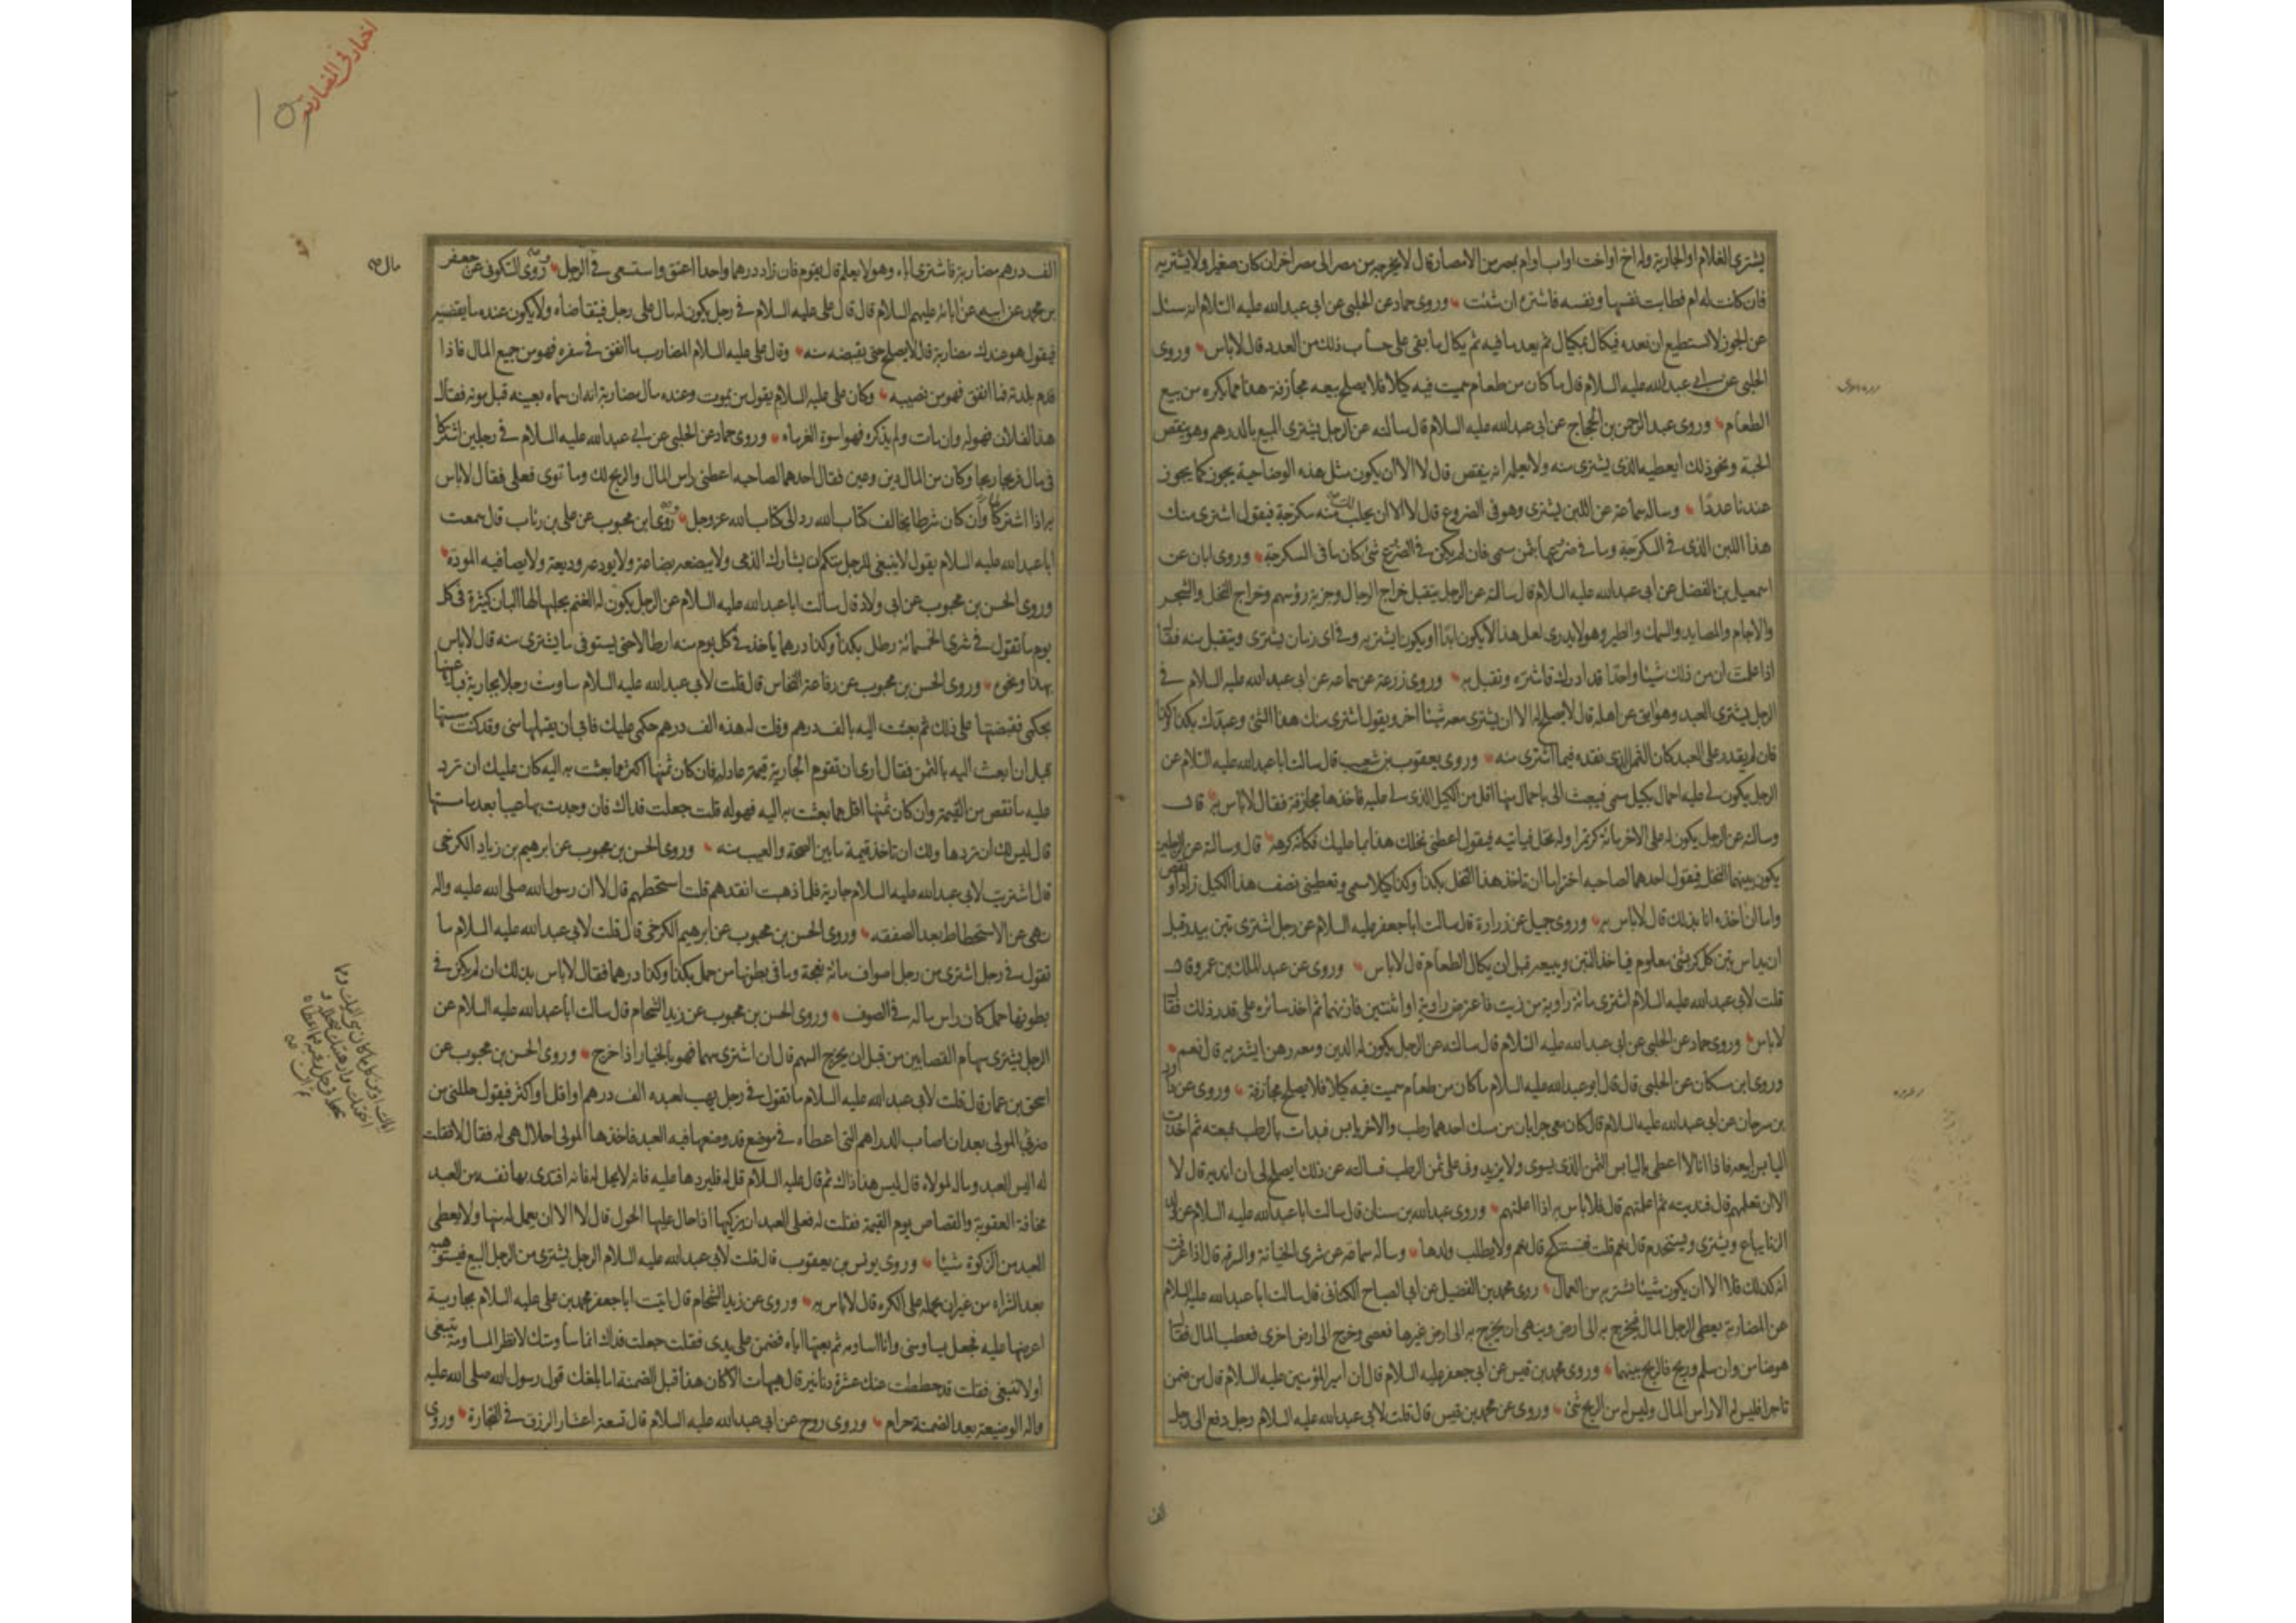 يشترى الغلام او الجارية وله اخ او اخت او اب او ام بمصر من الامصار قال لا يخرجه من مصر الى مصر اخر ان كان صغيرا ولا يشتريه
فان كانت له ام فطابت نفسها ونفسه فاشتره ان شئت وروى حماد عن الحلبى عن ابى عبدالله عليه السلام انه سئل
عن الجوز لا نستطيع ان نعده فيكال بمكيال ثم يعد ما فيه ثم يكال ما بقى على حساب ذلك من العدد قال لا باس وروى
الحلبى عن ابى عبدالله عليه السلام قال ما كان من طعام سميت فيه كيلا فلا يصلح بيعه مجازفة هذا مما يكره من بيع
الطعام وروى عبد الرحمن بن الحجاج عن ابى عبدالله عليه السلام قال سالته عن الرجل يشترى المبيع بالدرهم وهو ينقص
الحبة ونحو ذلك ايعطيه الذى يشترى منه ولا يعلمه انه ينقص قال لا الا ان يكون مثل هذه الوضاحية يجوز كما يجوز
عندنا عددا وساله سماعة عن اللبن يشترى وهو فى الضروع قال لا الا ان يحلب منه سكرجة فيقول اشترى منك
هذا اللبن الذى فى السكرجة وما فى ضروعها بثمن سمى فان لم يكن فى الضرع شئ كان ما فى السكرجة وروى ابان عن
اسمعيل بن الفضل عن ابى عبدالله عليه السلام قال سالته عن الرجل يتقبل خراج الرجال وجزية رؤسهم وخراج النخل والشجر
والاجام والمصايد والسمك والطير وهو لا يدرى لعل هذا لا يكون ابدا او يكون ايشتريه وفى اى زمان يشترى ويتقبل منه فقا
اذا علمت ان من ذلك شيئا واحدا قد ادرك فاشتره وتقبل به وروى زرعة عن سماعه عن ابى عبدالله عليه السلام فى
الرجل يشترى العبد وهو ابق عن اهله قال لا يصلح له الا ان يشترى معه شيئا اخر ويقول اشترى منك هذا الشئ وعبدك بكذا وكذا
فان لم يقدر على العبد كان الثمن الذى نقده فيما اشترى منه وروى يعقوب بن شعيب قال سالت ابا عبدالله عليه السلام عن
الرجل يكون لى عليه احمال بكيل سمى فبعث الى باحمال منها اقل من الكيل الذى لى عليه فاخذها مجازفة فقال لا باس به قال
وسالته عن الرجل يكون له على الاخر مائة كر تمرا وله نخل فياتيه فيقول اعطنى نخلك هذا بما عليك فكانه كرهه قال وسالته عن الرجلين
يكون بينهما النخل فيقول احدهما لصاحبه اختر اما ان تاخذ هذا النخل بكذا وكذا كيلا سمى وتعطينى نصف هذا الكيل زاد او نقص
واما ان اخذه انا بذلك قال لا باس به وروى جميل عن زرارة قال سالت ابا جعفر عليه السلام عن رجل اشترى تبن بيدر قبل
ان يداس تبن كل كر بشئ معلوم فياخذ التبن ويبيعه قبل ان يكال الطعام قال لا باس وروى عن عبد الملك بن عمرو قال
قلت لابى عبدالله عليه السلام اشترى مائة راوية من زيت فاعترض راوية او اثنتين فاتزنهما ثم اخذ سائره على قدر ذلك فقا
لا باس وروى حماد عن الحلبى عن ابى عبدالله عليه السلام قال سالته عن الرجل يكون له الدين ومعه رهن ايشتريه قال نعم
وروى ابن مسكان عن الحلبى قال قال ابو عبدالله عليه السلام ما كان من طعام سميت فيه كيلا فلا يصلح مجازفة وروى عن داود
بن سرحان عن ابى عبدالله عليه السلام قال كان معى جرابان من مسك احدهما رطب والاخر يابس فبدات بالرطب فبعته ثم اخذت
اليابس ابيعه فاذا انا لا اعطى باليابس الثمن الذى يسوى ولا يزيدونى على ثمن الرطب فسالته عن ذلك ايصلح لى ان انديه قال لا
الا ان تعلمهم قال فنديته ثم اعلمتهم قال فلا باس به اذا اعلمتهم وروى عبدالله بن سنان قال سالت ابا عبدالله عليه السلام عن ولد
الزنا يباع ويشترى ويستخدم قال نعم قلت فيستنكح قال نعم ولا يطلب ولدها وساله سماعه عن شرى الخيانة والسرقه قال اذا عرفت
انه كذلك فلا الا ان يكون شيئا تشتريه من العمال روى محمد بن الفضيل عن ابى الصباح الكنانى قال سالت ابا عبدالله عليه السلام
عن المضاربة يعطى الرجل المال فيخرج به الى ارض وينهى ان يخرج به الى ارض غيرها فعصى وخرج الى ارض اخرى فعطب المال فقا
هو ضامن وان سلم وربح فالربح بينهما وروى محمد بن قيس عن ابى جعفر عليه السلام قال ان امير المؤمنين عليه السلام قال من ضمن
تاجرا فليس له الا راس المال وليس له من الربح شئ وروى عن محمد بن قيس قال قلت لابى عبدالله عليه السلام رجل دفع الى رجل
الف
اخبار فى المضاربة
الف درهم مضاربة فاشترى اباه وهو لا يعلم قال يقوم فان زاد درهما واحدا اعتق واستسعى فى الرجل وروى السكونى عن جعفر
بن محمد عن ابيه عن ابائه عليهم السلام قال قال على عليه السلام فى رجل يكون له مال على رجل فيتقاضاه ولا يكون عنده ما يقضيه
فيقول هو عندك مضاربة قال لا يصلح حتى يقبضه منه وقال على عليه السلام المضارب ما انفق فى سفره فهو من جميع المال فاذا
قدم بلدته فما انفق فهو من نصيبه وكان على عليه السلام يقول من يموت وعنده مال مضاربة انه ان سماه بعينه قبل موته فقال
هذا لفلان فهو له وان مات ولم يذكره فهو اسوة الغرماء وروى حماد عن الحلبى عن ابى عبدالله عليه السلام فى رجلين اشتركا
فى مال فربحا ربحا وكان من المال دين وعين فقال احدهما لصاحبه اعطنى راس المال والربح لك وما توى فعلى فقال لا باس
به اذا اشتركا وان كان شرطا يخالف كتاب الله رد الى كتاب الله عز وجل وروى ابن محبوب عن على بن رئاب قال سمعت
ابا عبدالله عليه السلام يقول لا ينبغى للرجل منكم ان يشارك الذمى ولا يبضعه بضاعة ولا يودعه وديعة ولا يصافيه المودة
وروى الحسن بن محبوب عن ابى ولاد قال سالت ابا عبدالله عليه السلام عن الرجل يكون له الغنم يحلبها لها البان كثيرة فى كل
يوم ما تقول فى شرى الخمسمائة رطل بكذا وكذا درهما ياخذ فى كل يوم منه ارطالا حتى يستوفى ما يشترى منه قال لا باس
بهذا ونحوه وروى الحسن بن محبوب عن رفاعة النخاس قال قلت لابى عبدالله عليه السلام ساومت رجلا بجارية فباعنيها
بحكمى فقبضتها على ذلك ثم بعثت اليه بالف درهم وقلت له هذه الف درهم حكمى عليك فابى ان يقبلها منى وقد كنت مسستها
قبل ان ابعث اليه بالثمن فقال ارى ان تقوم الجارية قيمة عادلة فان كان ثمنها اكثر مما بعثت به اليه كان عليك ان ترد
عليه ما نقص من القيمة وان كان ثمنها اقل مما بعثت به اليه فهو له قلت جعلت فداك فان وجدت بها عيبا بعد ما مسستها
قال ليس لك ان تردها ولك ان تاخذ قيمة ما بين الصحة والعيب منه وروى الحسن بن محبوب عن ابرهيم بن زياد الكرخى
قال اشتريت لابى عبدالله عليه السلام جارية فلما ذهبت انقدهم قلت استحطهم قال لا ان رسول الله صلى الله عليه واله
نهى عن الاستحطاط بعد الصفقه وروى الحسن بن محبوب عن ابرهيم الكرخى قال قلت لابى عبدالله عليه السلام ما
تقول فى رجل اشترى من رجل اصواف مائة نعجة وما فى بطونها من حمل بكذا وكذا درهما فقال لا باس بذلك ان لم يكن فى
بطونها حمل كان راس ماله فى الصوف وروى الحسن بن محبوب عن زيد الشحام قال سالت ابا عبدالله عليه السلام عن
الرجل يشترى سهام القصابين من قبل ان يخرج السهم قال ان اشترى سهما فهو بالخيار اذا خرج وروى الحسن بن محبوب عن
اسحق بن عمار قال قلت لابى عبدالله عليه السلام ما تقول فى رجل يهب لعبده الف درهم او اقل او اكثر فيقول حللنى من
ضربى المولى بعد ان اصاب الدراهم التى اعطاه فى موضع قد وضعها فيه العبد فاخذها المولى احلال هى له فقال لا فقلت
له اليس العبد وماله لمولاه قال ليس هذا ذاك ثم قال عليه السلام قل له فليردها عليه فانه لا يحل له فانه افتدى بها نفسه من العبد
مخافة العقوبة والقصاص يوم القيمة فقلت له فعلى العبد ان يزكيها اذا حال عليها الحول قال لا الا ان يعمل له بها ولا يعطى
العبد من الزكوة شيئا وروى يونس بن يعقوب قال قلت لابى عبدالله عليه السلام الرجل يشترى من الرجل البيع فيستوهبه
بعد الشراء من غير ان يحمله على الكره قال لا باس به وروى عن زيد الشحام قال اتيت ابا جعفر محمد بن على عليه السلام بجارية
اعرضها عليه فجعل يساومنى وانا اساومه ثم بعتها اياه فضمن على يدى فقلت جعلت فداك انما ساومتك لانظر المساومة تنبغى
او لا تنبغى فقلت قد حططت عنك عشرة دنانير قال هيهات الا كان هذا قبل الضمنة اما بلغك قول رسول الله صلى الله عليه
واله الوضيعة بعد الضمنة حرام وروى روح عن ابى عبدالله عليه السلام قال تسعة اعشار الرزق فى التجارة وروى